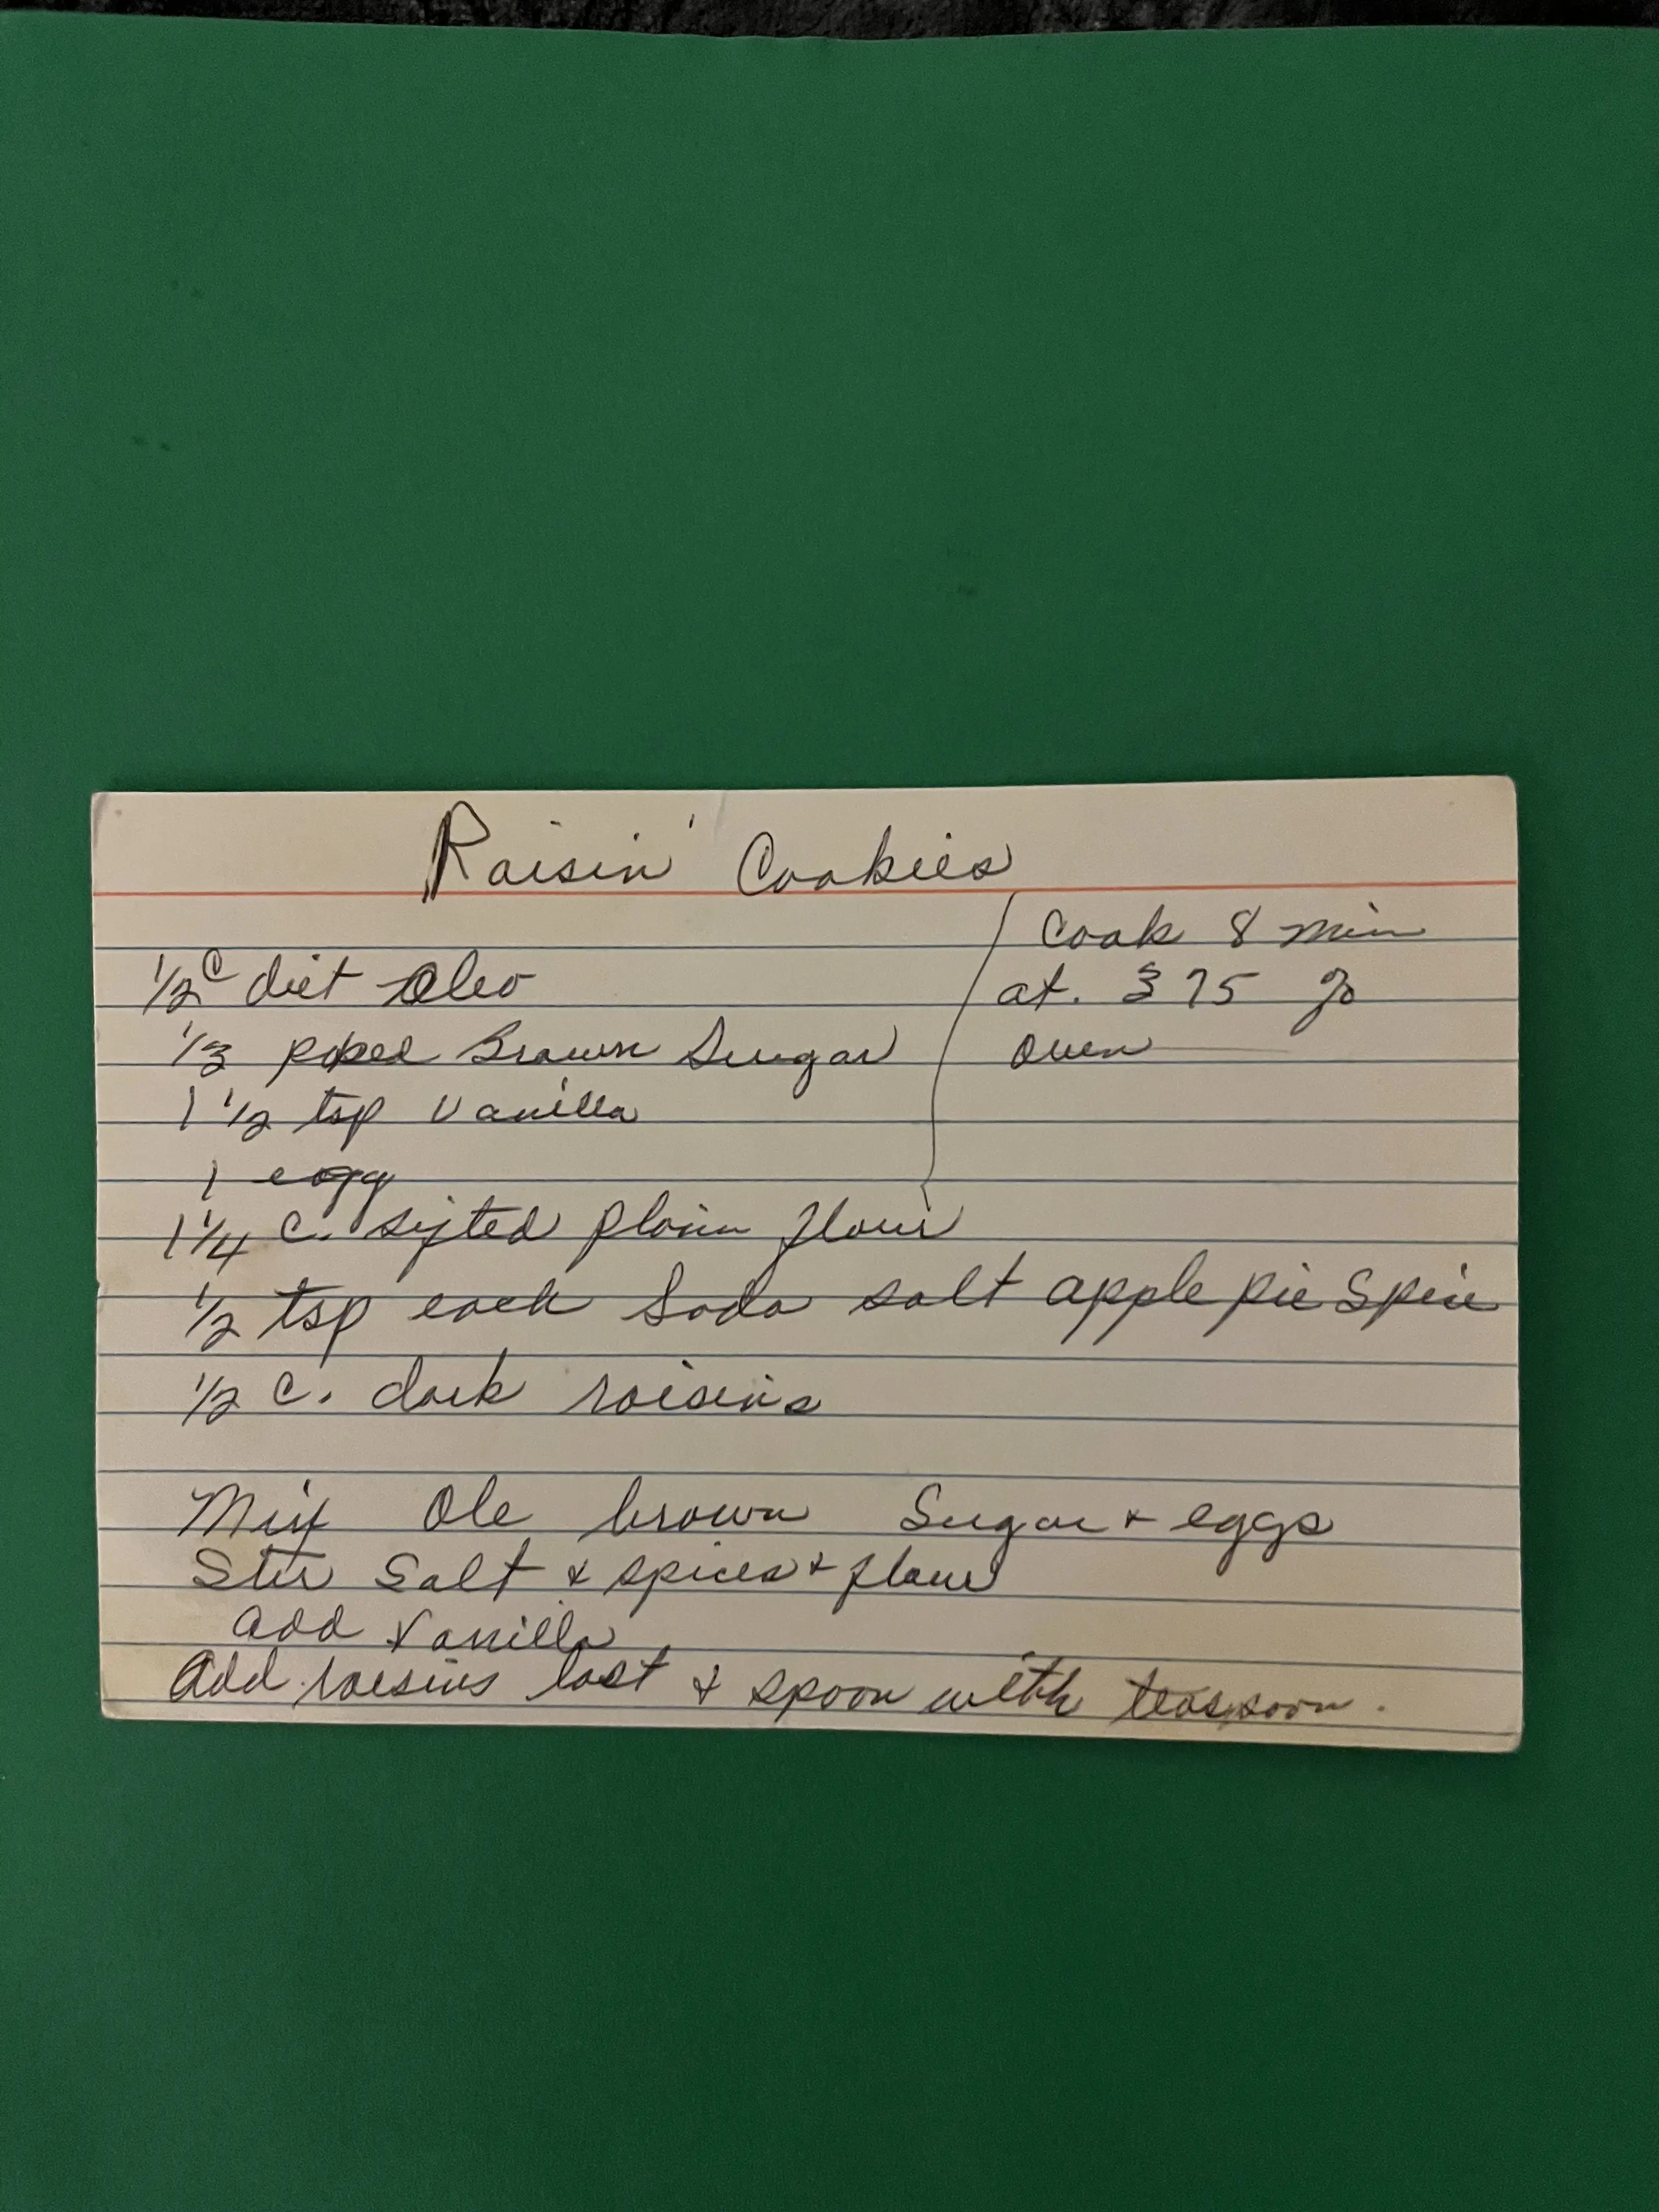 Raisin' Cookies
Cook 8 min
at. 375 %
oven
1/2 C diet Oleo
1/3 Brown Sugar
1 1/2 tsp Vanilla
1 egg
1 1/4 C. sifted plain flour
1/2 tsp each Soda salt apple pie Spice
1/2 C. dark raisins
Mix Ole brown Sugar + eggs
Stir Salt & spices + flour
add Vanilla
Add raisins last & spoon with teaspoon.